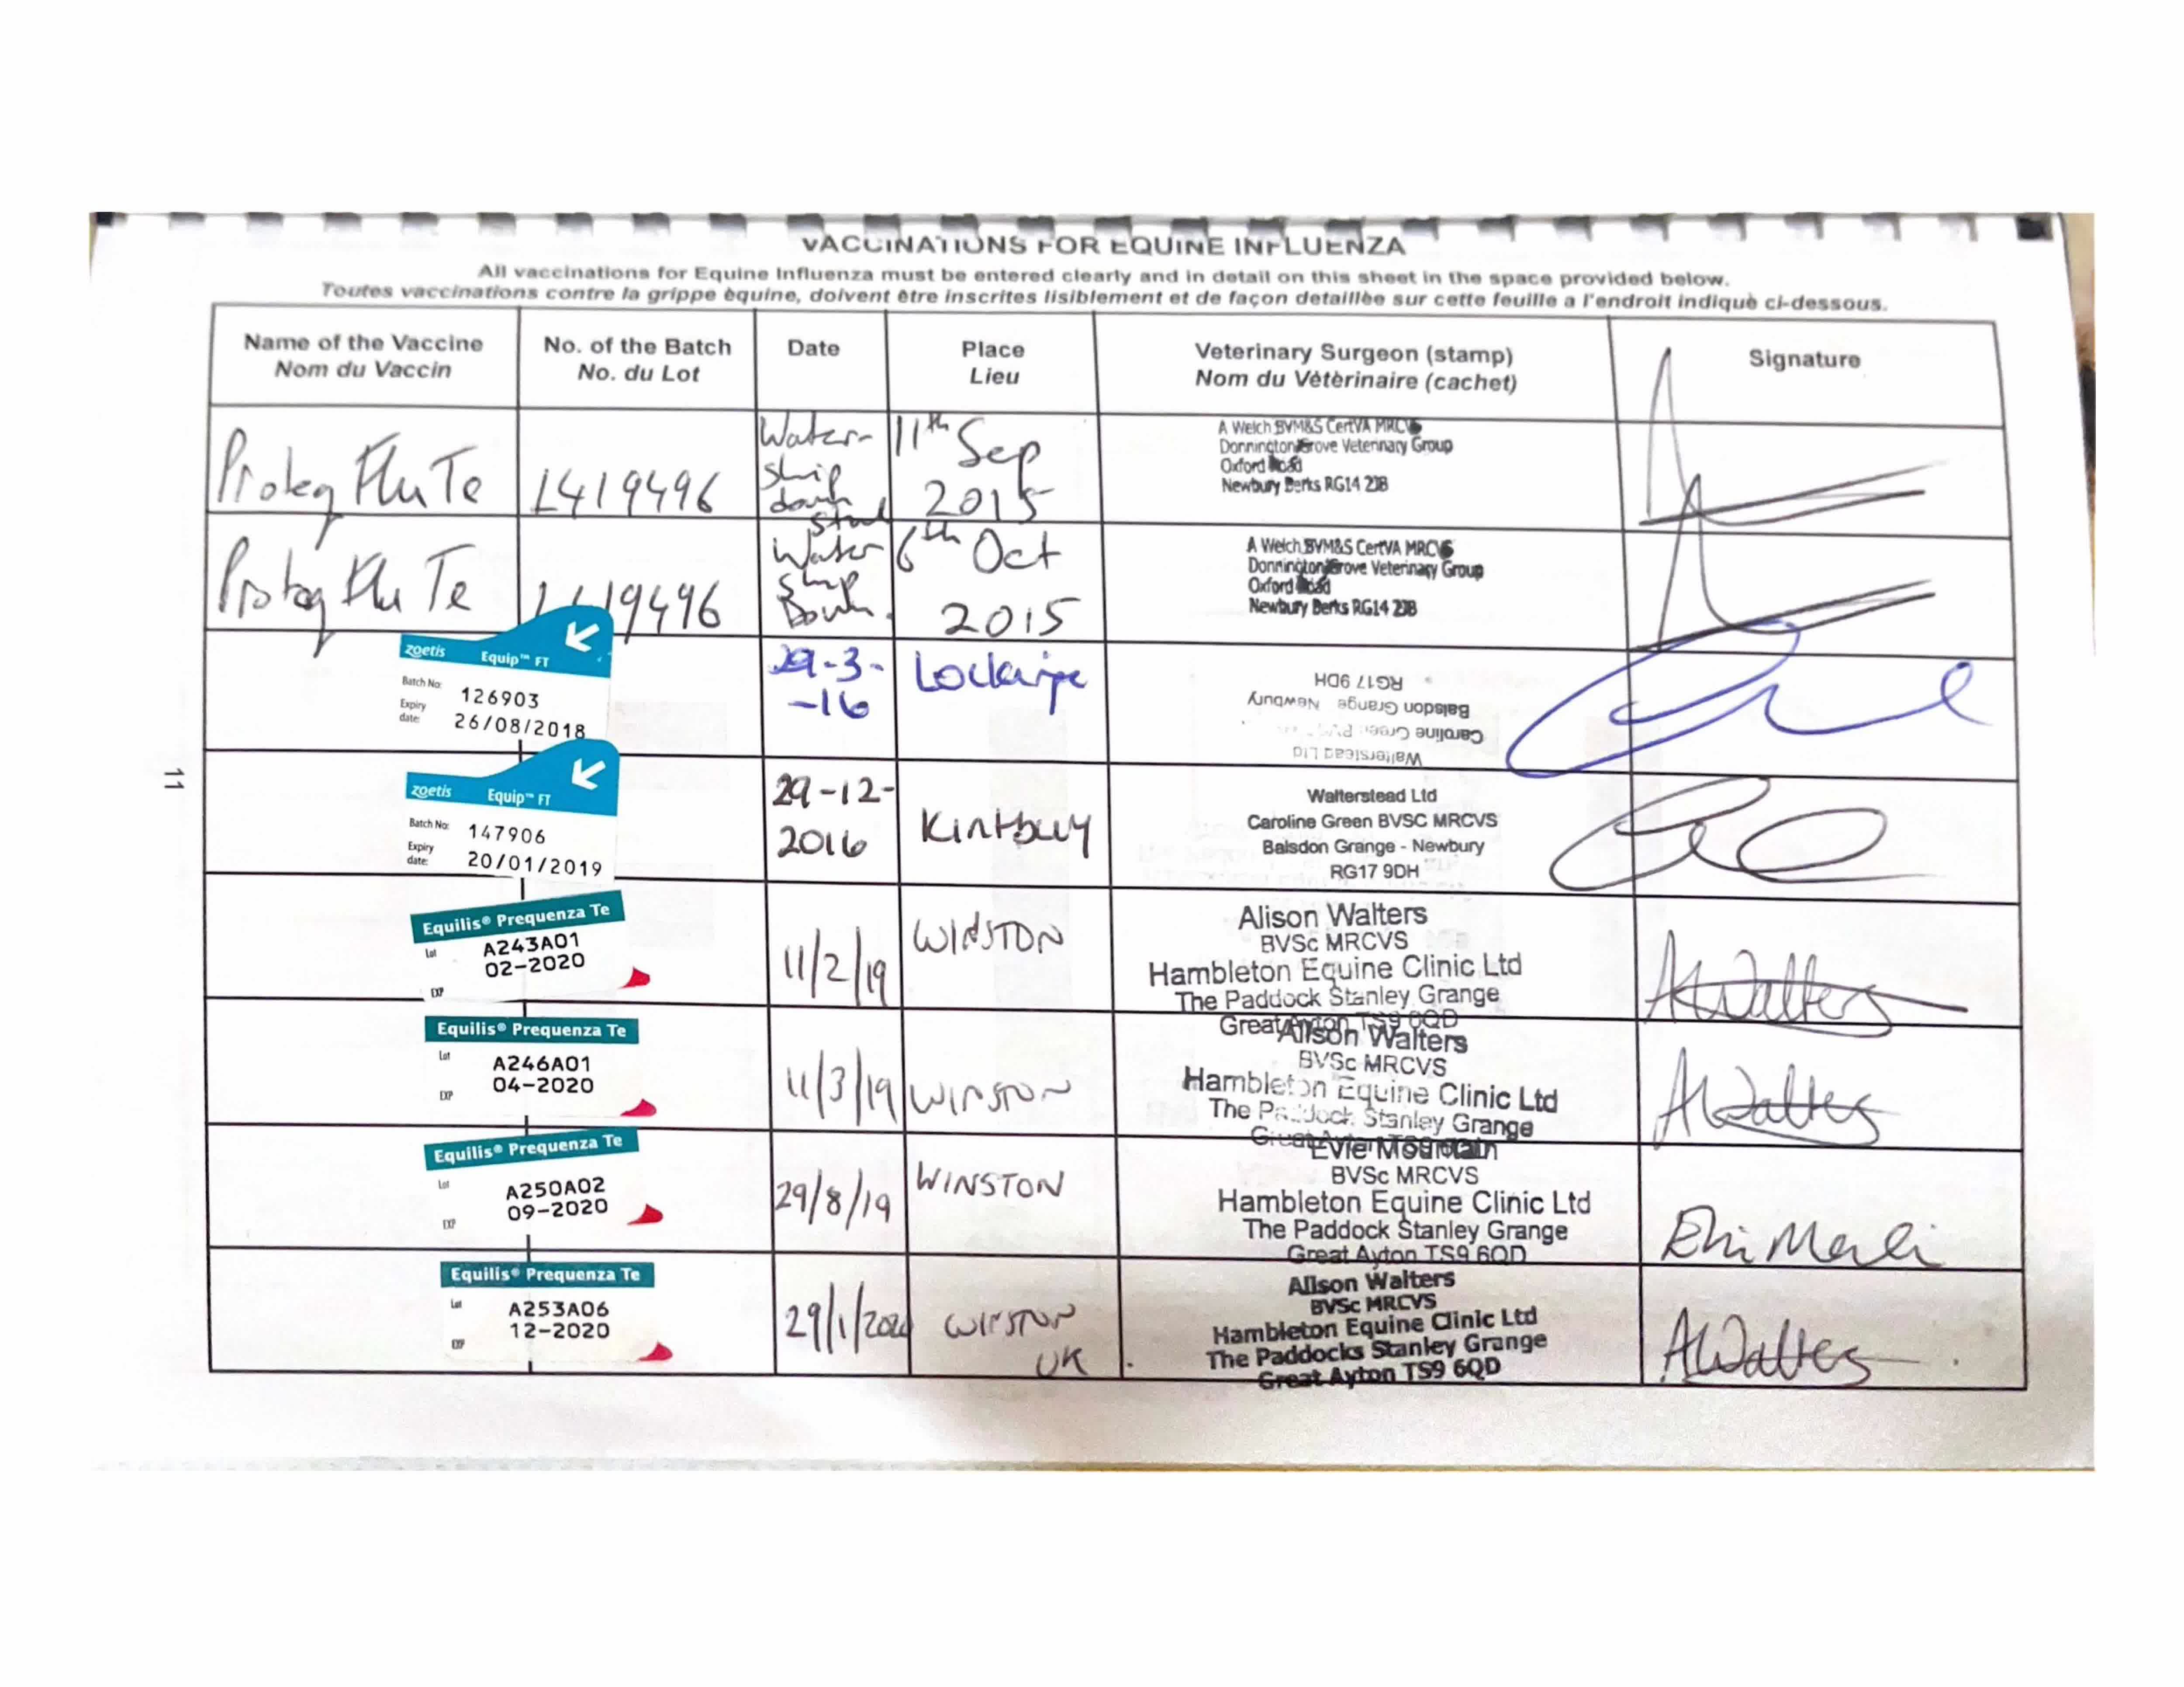 VACCINATIONS FOR EQUINE INFLUENZA
All vaccinations for Equine Influenza must be entered clearly and in detail on this sheet in the space provided below.
Toutes vaccinations contre la grippe équine, doivent être inscrites lisiblement et de façon detaillèe sur cette feuille a l'endroit indiquè ci-dessous.
Name of the Vaccine
Nom du Vaccin
No. of the Batch
No. du Lot
Date
Place
Lieu
Veterinary Surgeon (stamp)
Nom du Vètèrinaire (cachet)
Signature
Proteq Flu Te
L419496
Water-
ship
down
Stud
11th Sep
2015
A Welch BVM&S CertVA MRCVS
Donnington Grove Veterinary Group
Oxford Road
Newbury Berks RG14 2JB
Proteq Flu Te
L419496
Water
ship
Down.
6th Oct
2015
A Welch BVM&S CertVA MRCVS
Donnington Grove Veterinary Group
Oxford Road
Newbury Berks RG14 2JB
zoetis Equip™ FT
Batch No: 126903
Expiry date: 26/08/2018
29-3-
-16
Walterstead Ltd
Caroline Green
Balsdon Grange Newbury
RG17 9DH
zoetis Equip™ FT
Batch No: 147906
Expiry date: 20/01/2019
29-12-
2016
Kintbury
Walterstead Ltd
Caroline Green BVSC MRCVS
Balsdon Grange - Newbury
RG17 9DH
Equilis® Prequenza Te
Lot A243A01
EXP 02-2020
11/2/19
WINSTON
Alison Walters
BVSc MRCVS
Hambleton Equine Clinic Ltd
The Paddock Stanley Grange
Great Ayton TS9 6QD
AWalters
Equilis® Prequenza Te
Lot A246A01
EXP 04-2020
11/3/19
WINSTON
Alison Walters
BVSc MRCVS
Hambleton Equine Clinic Ltd
The Paddock Stanley Grange
AWalters
Equilis® Prequenza Te
Lot A250A02
EXP 09-2020
29/8/19
WINSTON
Evie Mountain
BVSc MRCVS
Hambleton Equine Clinic Ltd
The Paddock Stanley Grange
Great Ayton TS9 6QD
Equilis® Prequenza Te
Lot A253A06
EXP 12-2020
29/1/2020
WINSTON
UK
Alison Walters
BVSc MRCVS
Hambleton Equine Clinic Ltd
The Paddocks Stanley Grange
Great Ayton TS9 6QD
AWalters
11